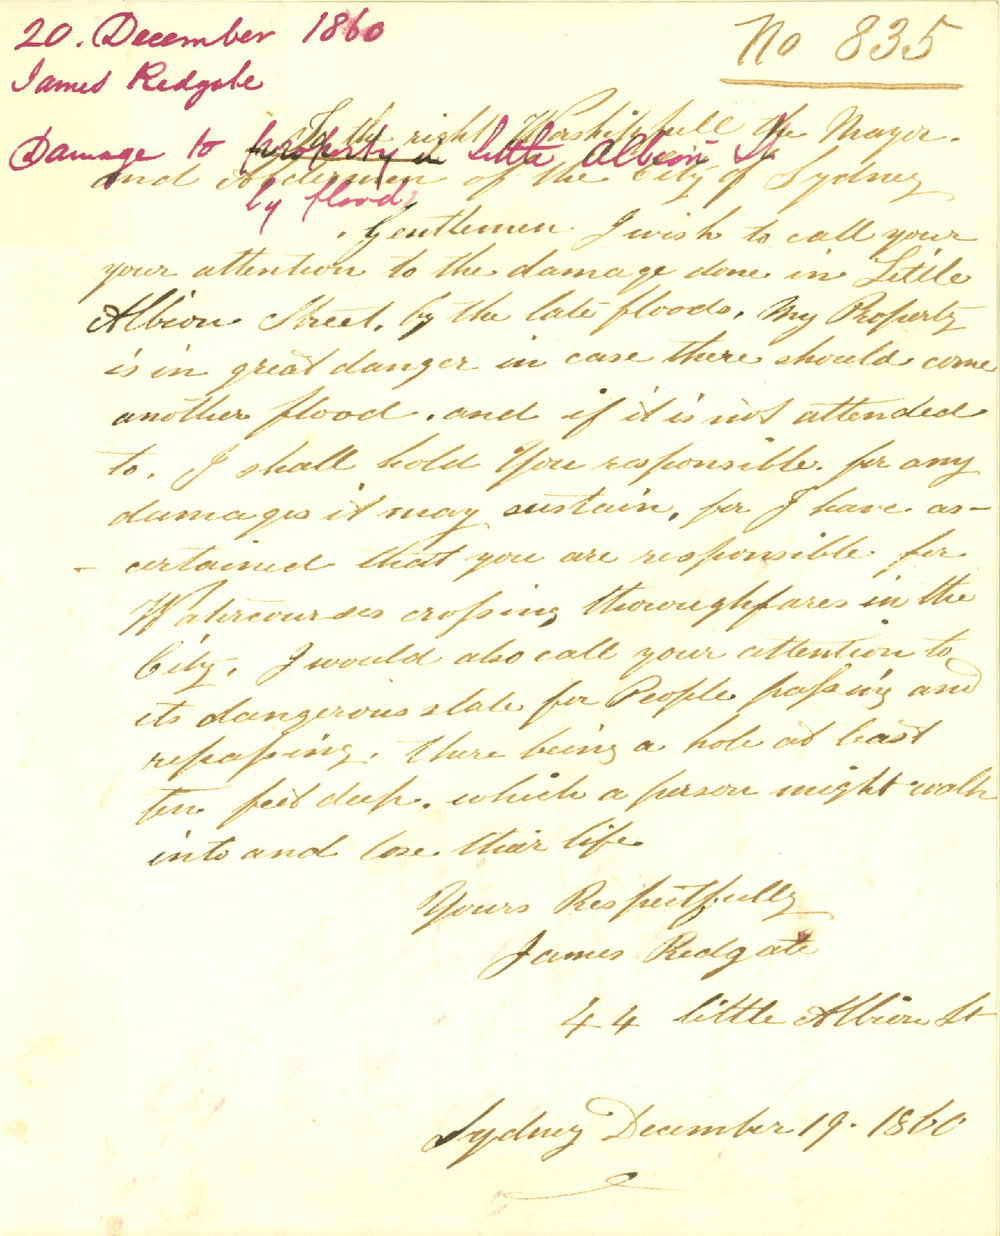 20. December 1860
No 835
James Redgate
To the right Worshipfull the Mayor.
Damage to property in Little Albion St
and Aldermen of the City of Sydney
by floods
Gentlemen I wish to call your
your attention to the damage done in Little
Albion Street, by the late floods, My Property
is in great danger in case there should come
another flood. and if it is not attended
to, I shall hold You responsible for any
damages it may sustain, for I have as-
-certained that you are responsible for
Watercourses crossing thoroughfares in the
City, I would also call your attention to
its dangerous state for People passing and
repassing, there being a hole at least
ten feet deep. which a person might walk
into and lose their life
Yours Respectfully
James Redgate
44 little Albion St
Sydney December 19. 1860